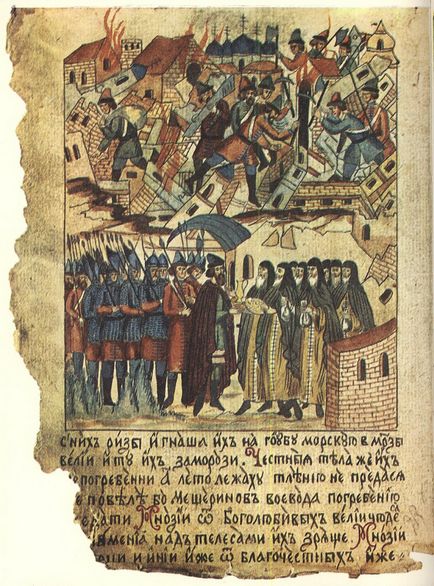 с нихъ ризы и гнаша ихъ на губу морскую в мразы
велии и ту ихъ заморози. Честныя тѣла же ихъ
погребенни а лето лежаху тлѣнию не предася
не повѣлѣ бо Мещериновъ воевода погребению
Мнозии ѿ Боголюбивыхъ велии
знамения надъ телесами ихъ зряще. Мнозии
они и инии иже ѿ благочестныхъ иже